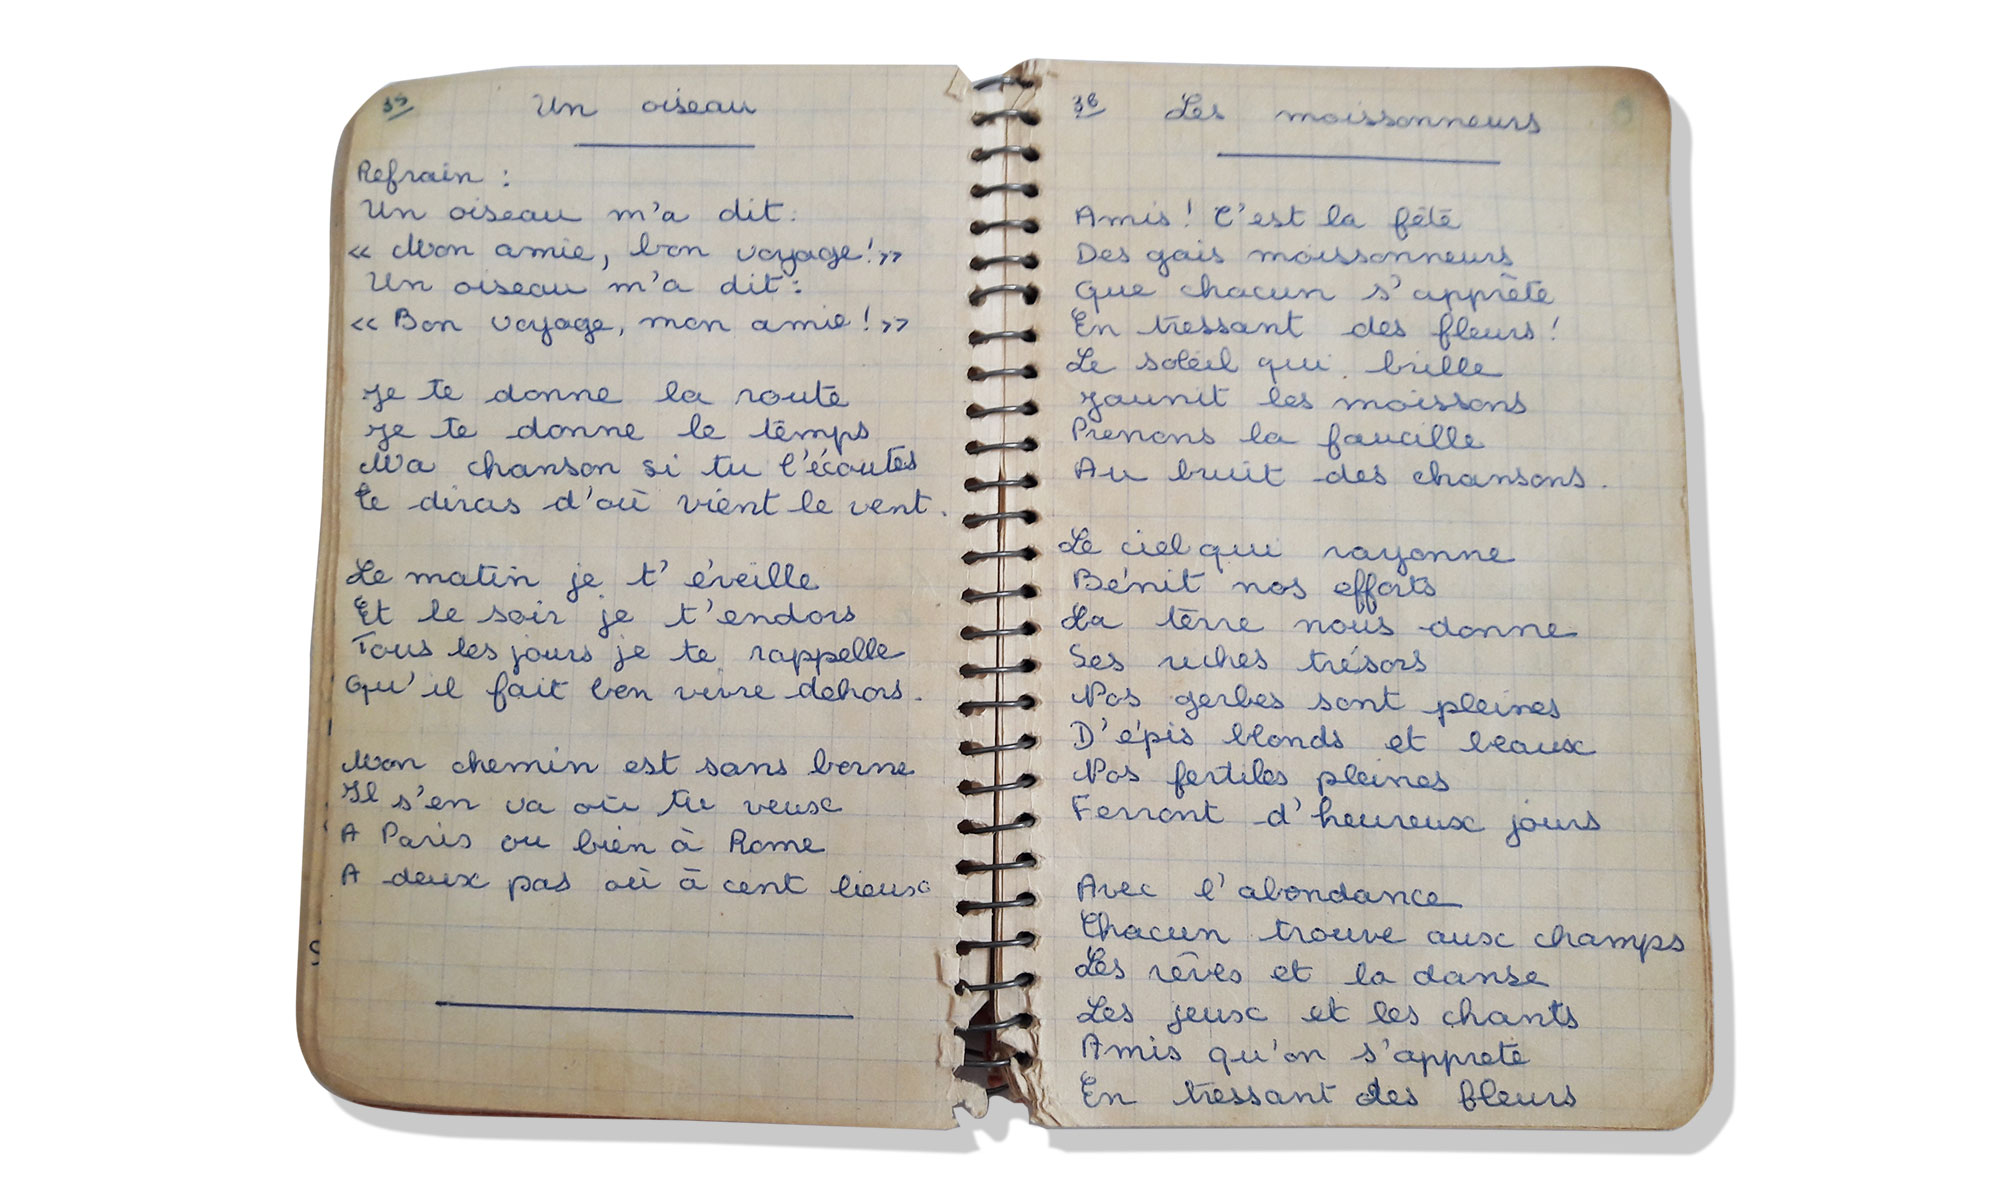 35
Un oiseau
Refrain :
Un oiseau m'a dit:
« Mon amie, bon voyage! »
Un oiseau m'a dit:
« Bon voyage, mon amie! »
Je te donne la route
Je te donne le temps
Ma chanson si tu l'écoutes
Te diras d'où vient le vent.
Le matin je t'éveille
Et le soir je t'endors
Tous les jours je te rappelle
Qu'il fait bon vivre dehors.
Mon chemin est sans borne
Il s'en va où tu veux
A Paris ou bien à Rome
A deux pas où à cent lieux
36
Les moissonneurs
Amis! C'est la fête
Des gais moissonneurs
Que chacun s'apprête
En tressant des fleurs!
Le soleil qui brille
Jaunit les moissons
Prenons la faucille
Au bruit des chansons.
Le ciel qui rayonne
Bénit nos efforts
La terre nous donne
Ses riches trésors
Nos gerbes sont pleines
D'épis blonds et beaux
Nos fertiles pleines
Ferront d'heureux jours
Avec l'abondance
Chacun trouve aux champs
Les rêves et la danse
Les jeux et les chants
Amis qu'on s'apprete
En tressant des fleurs